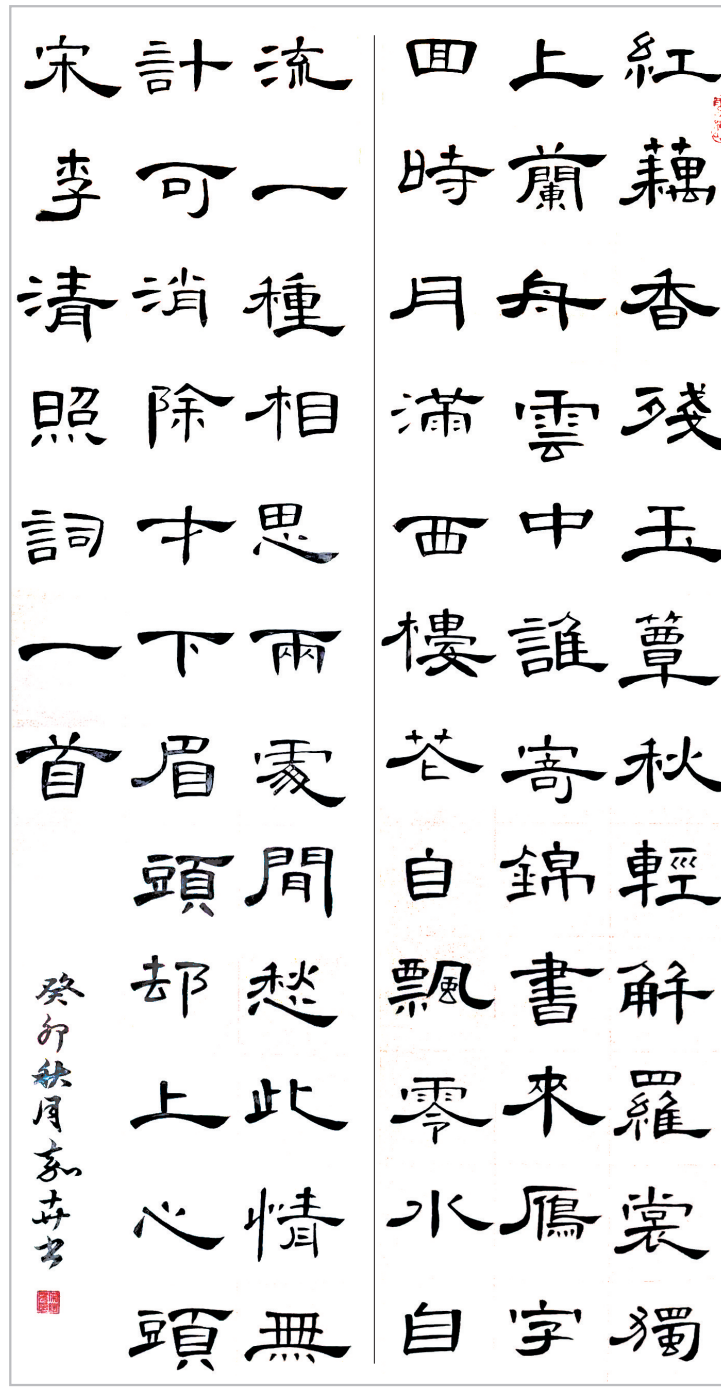 紅藕香殘玉簟秋輕解羅裳獨
上蘭舟雲中誰寄錦書來鴈字
回時月滿西樓花自飄零水自
流一種相思兩處閒愁此情無
計可消除才下眉頭却上心頭
宋李清照詞一首
癸卯秋月嘉卉书